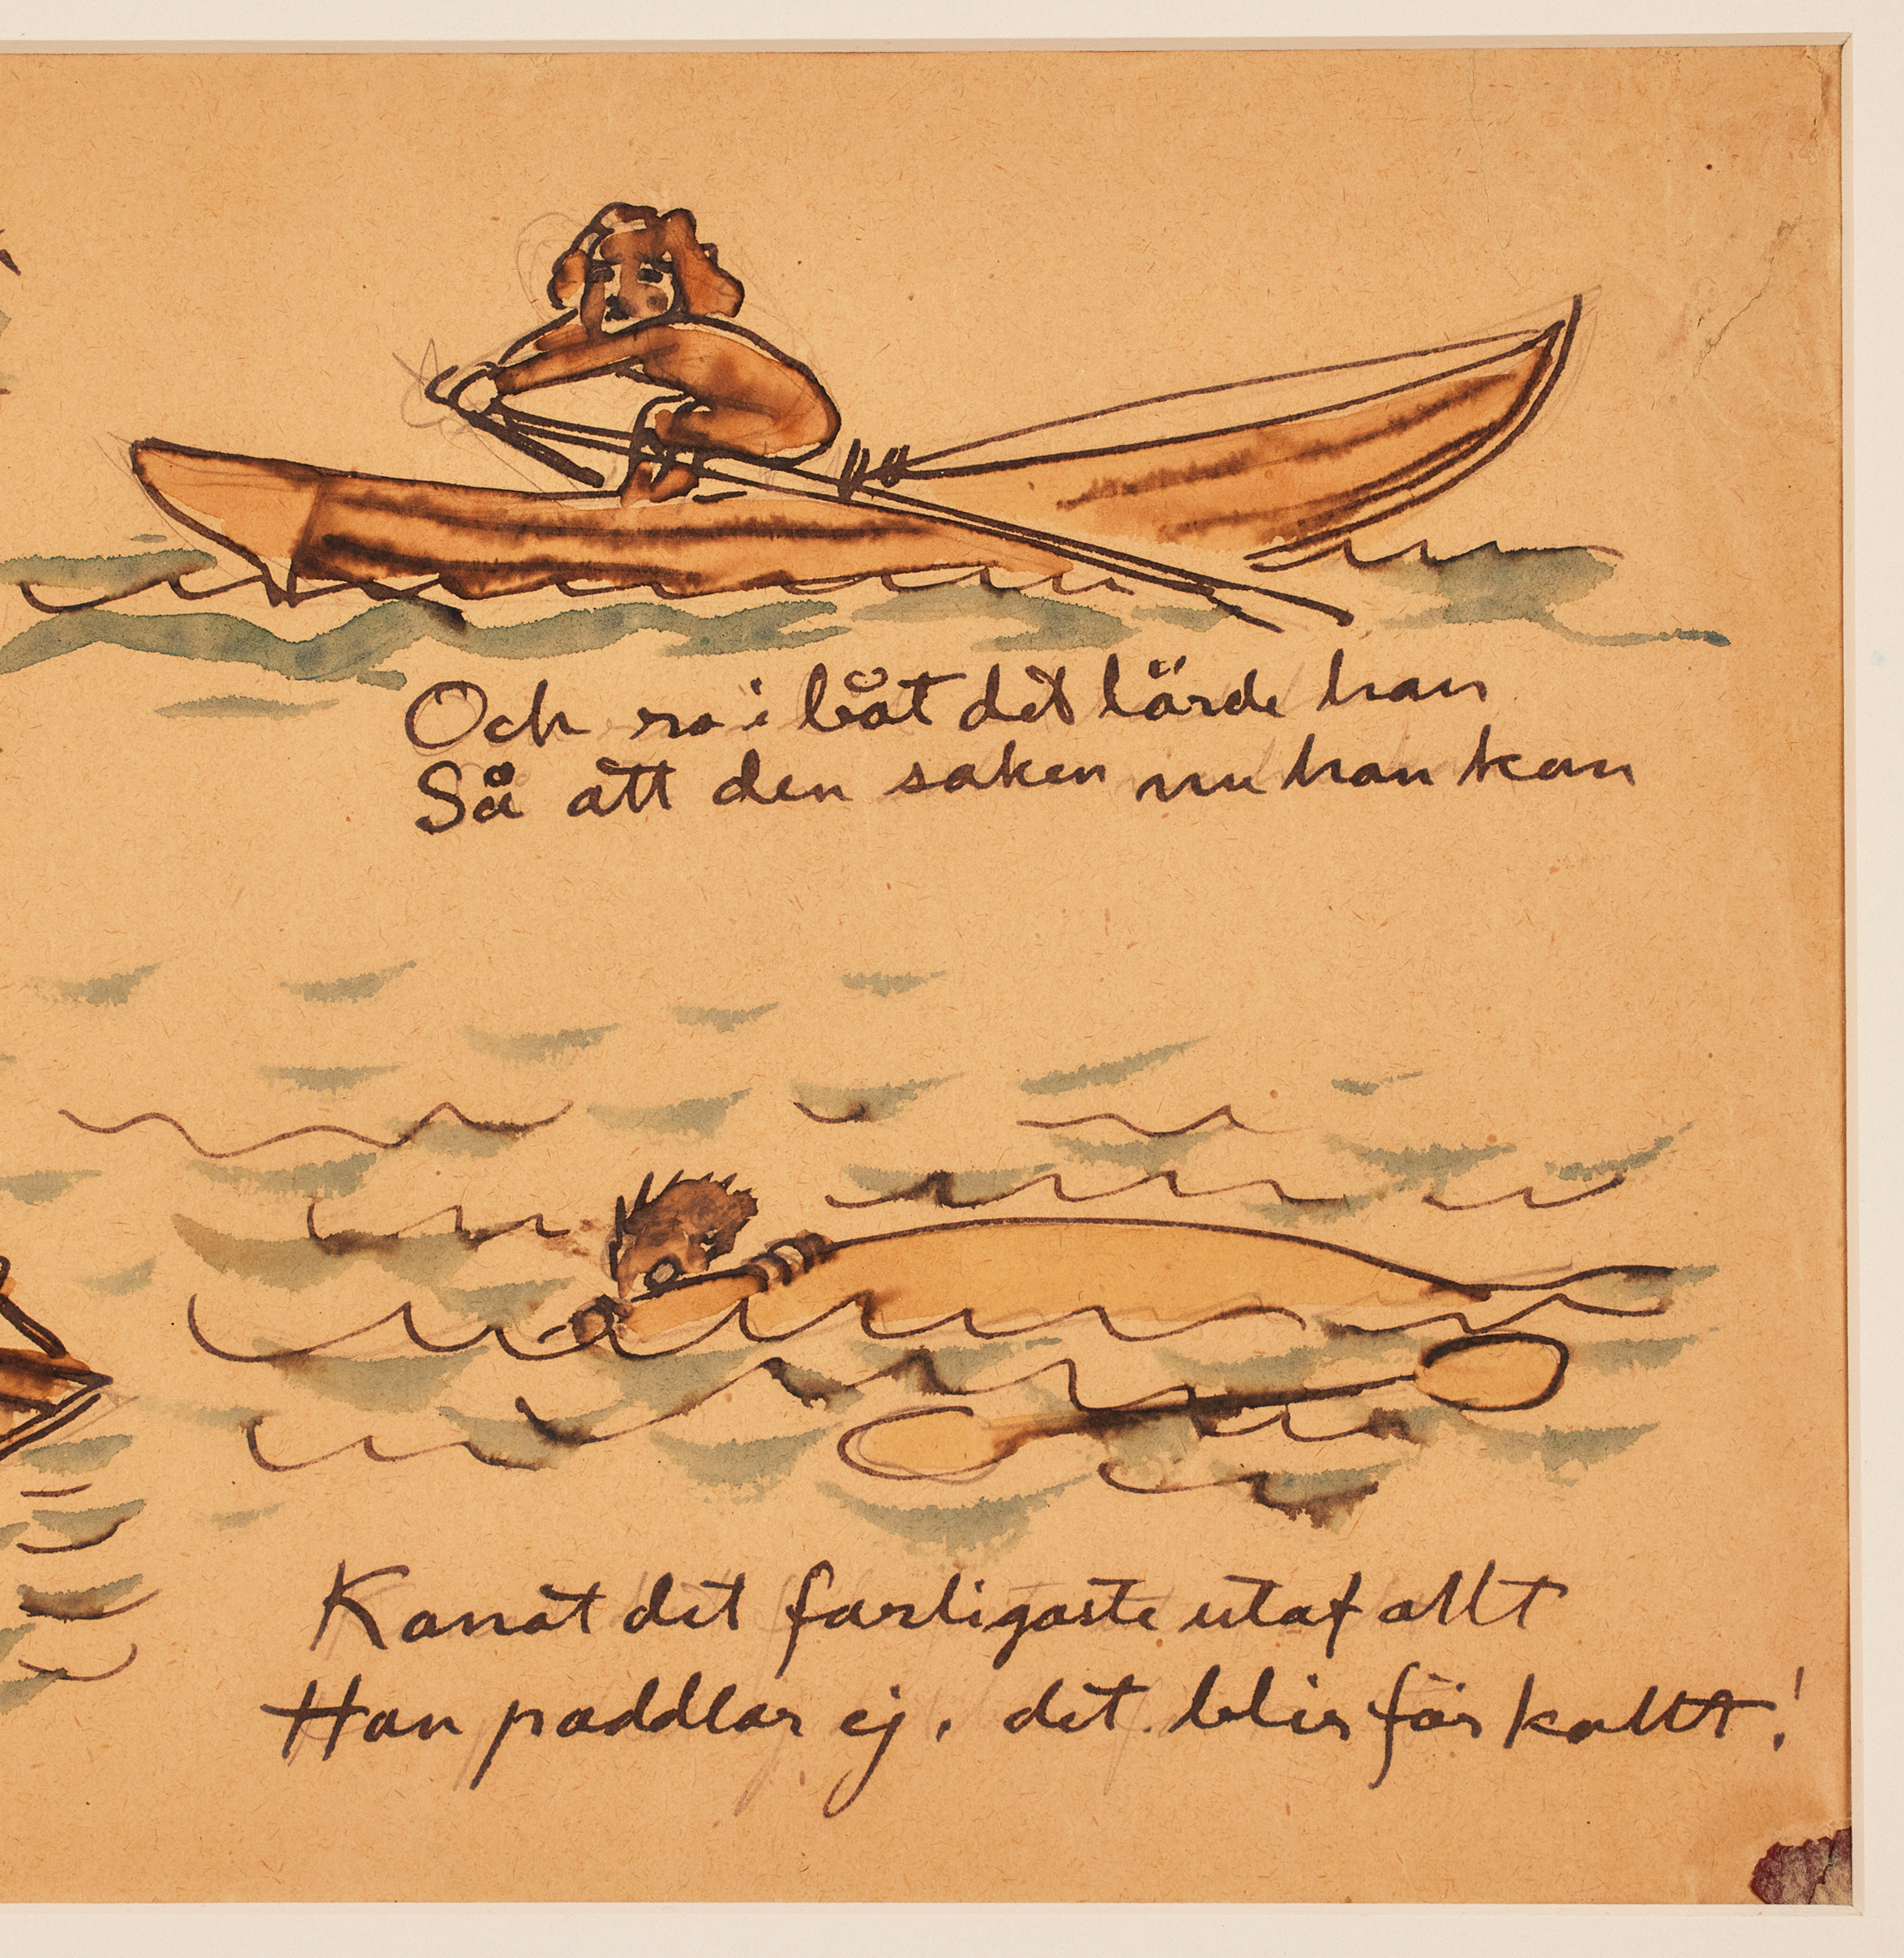 Och ro i båt det lärde han
Så att den saken nu han kan
Kanot det farligaste utaf allt
Han paddlar ej, det blir för kallt!